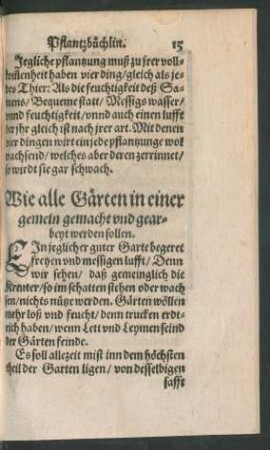 Pflantzbüchlin. 15
Jegliche pflantzung muß zu jrer voll-
kommenheit haben vier ding/gleich als je-
des Thier: Als die feuchtigkeit deß Sa-
mens/Bequeme statt/Messigs wasser/
vnnd feuchtigkeit/vnnd auch einen lufft
der jhr gleich ist nach jrer art. Mit denen
vier dingen wirt ein jede pflantzunge wol
wachsend/welches aber deren zerrinnet/
so wirdt sie gar schwach.
Wie alle Gärten in einer
gemein gemacht vnd gear-
beyt werden sollen.
EIn jeglicher guter Garte begeret
freyen vnd messigen lufft/Denn
wir sehen/ daß gemeinglich die
Kreuter/so im schatten stehen oder wach
sen/nichts nütze werden. Gärten wöllen
mehr loß vnd feucht/denn trucken erdt-
rich haben/wenn Lett vnd Leymen seind
der Gärten feinde.
Es soll allezeit mist inn dem höchsten
theil der Garten ligen/von desselbigen
safft